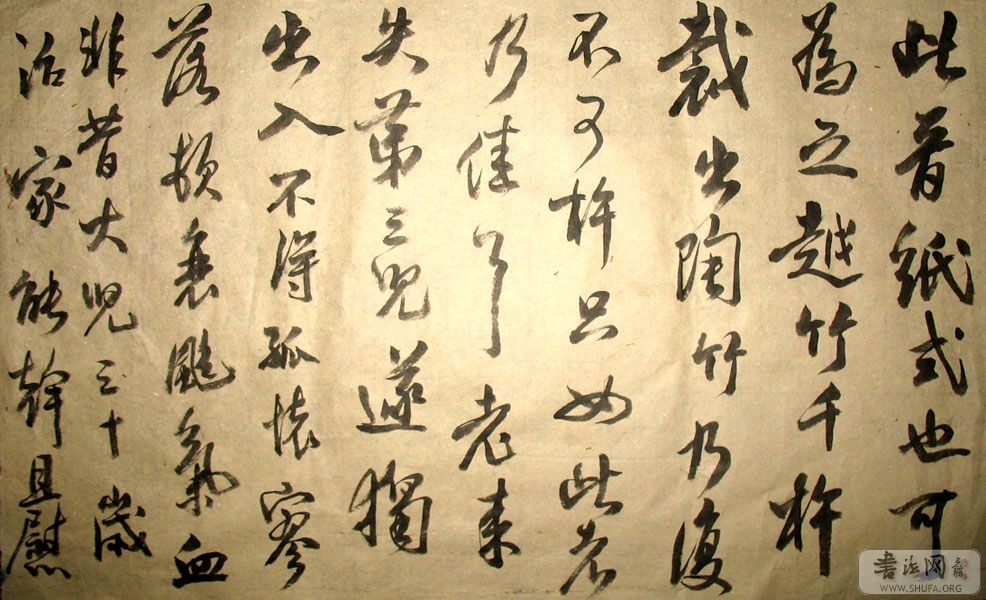 此晉紙式也可
為之越竹千杵
裁出陶竹乃復
不可杵只如此者
乃佳耳老来
失第三兒遂獨
出入不得孤懷寥
落頓衰颯氣血
非昔大兒三十歲
治家能幹且慰
書法网
WWW.SHUFA.ORG